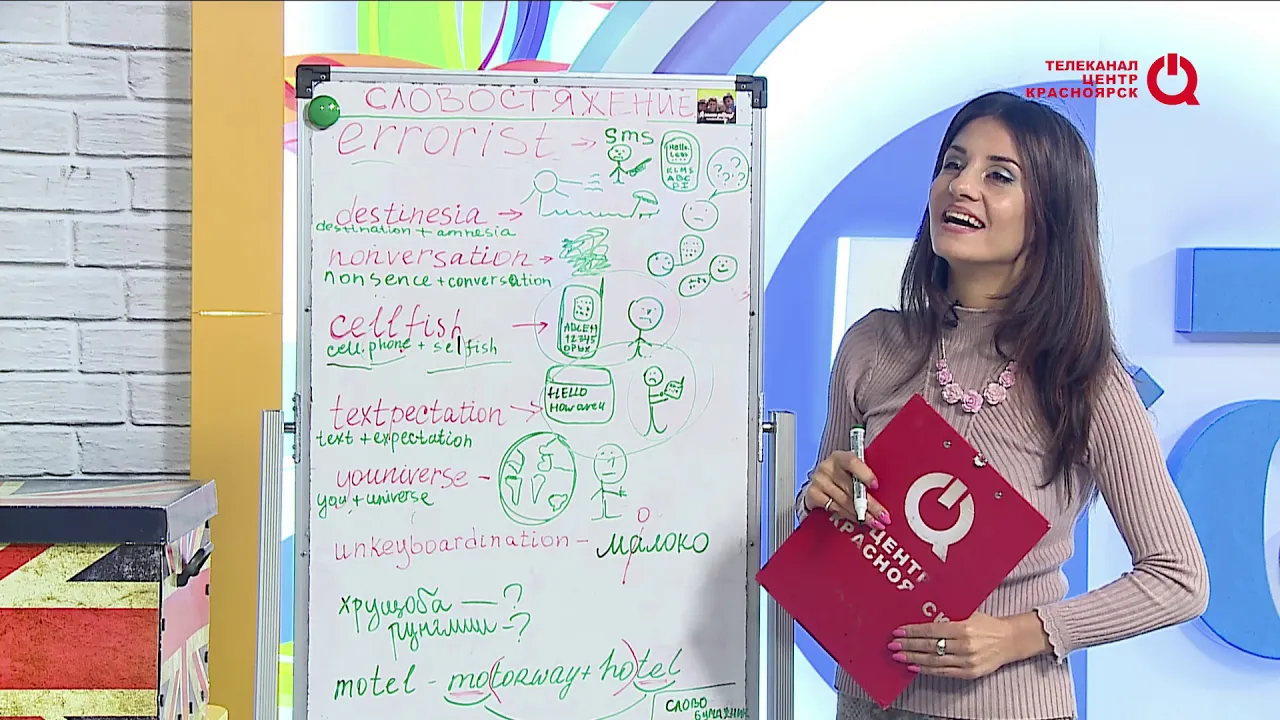 ТЕЛЕКАНАЛ
ЦЕНТР
КРАСНОЯРСК
СЛОВОСТЯЖЕНИЕ
errorist
sms
Hello
KLMS
ABC
? ? ? ?
destinesia
destination + amnesia
nonversation
nonsence + conversation
cellfish
cell.phone + selfish
12345
textpectation
text + expectation
HELLO
How are u
youniverse -
you + universe
unkeyboardination - малоко
о
хрущоба — ?
рунглиш - ?
motel - motorway + hotel
СЛОВО
БУМАЖНИК
ЦЕНТР
КРАСНОЯ СК